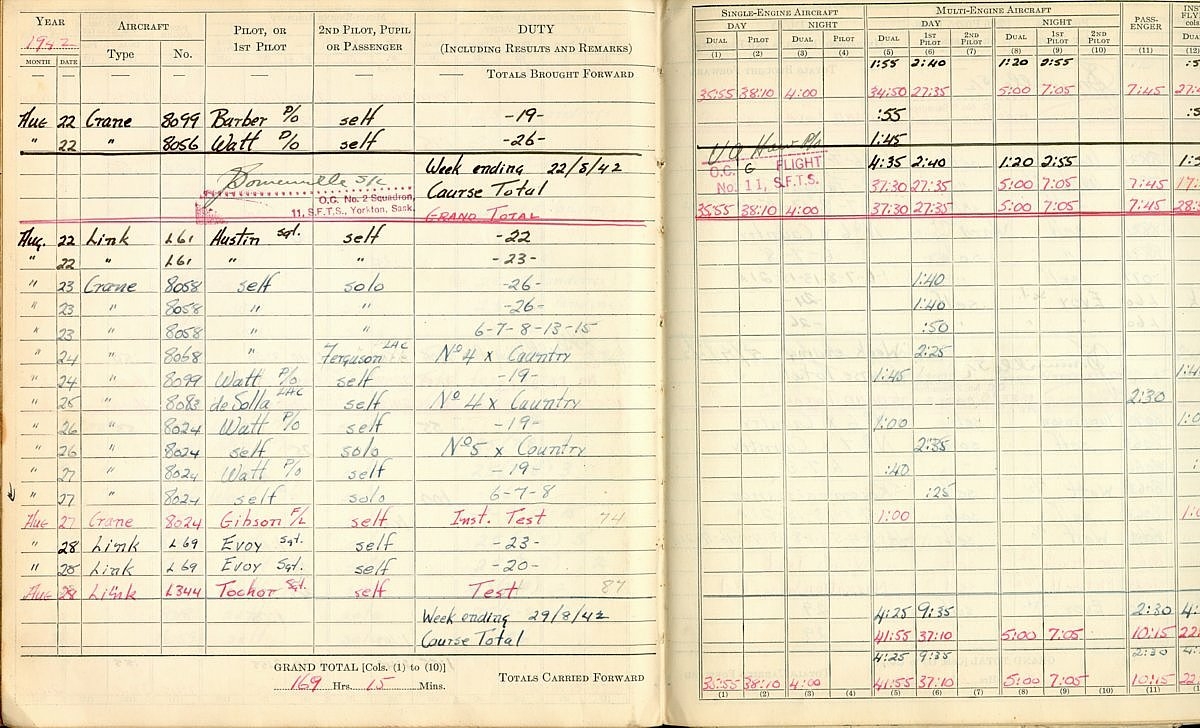 YEAR AIRCRAFT PILOT, OR 1ST PILOT 2ND PILOT, PUPIL OR PASSENGER DUTY (INCLUDING RESULTS AND REMARKS) SINGLE-ENGINE AIRCRAFT MULTI-ENGINE AIRCRAFT PASS-ENGER
1942 Type No. DAY NIGHT DAY NIGHT
MONTH DATE DUAL PILOT DUAL PILOT DUAL 1ST PILOT 2ND PILOT DUAL 1ST PILOT 2ND PILOT
(1) (2) (3) (4) (5) (6) (7) (8) (9) (10) (11) (12)
— — — — — — — TOTALS BROUGHT FORWARD 1:55 2:40 1:20 2:55
35:55 38:10 4:00 34:50 27:35 5:00 7:05 7:45
Aug 22 Crane 8099 Barber P/O self -19- :55
" 22 8056 Watt P/O self -26- 1:45
Week ending 22/8/42 4:35 2:40 1:20 2:55
O.C. G FLIGHT
No. 11, S.F.T.S.
O.C. No. 2 Squadron,
11, S.F.T.S., Yorkton, Sask.
Course Total 37:30 27:35 5:00 7:05 7:45
GRAND TOTAL 35:55 38:10 4:00 37:30 27:35 5:00 7:05 7:45
Aug. 22 Link L61 Austin Sgt. self -22
" 22 " L61 " " -23-
" 23 Crane 8058 self solo -26- 1:40
" 23 " 8058 " " -26- 1:40
" 23 " 8058 " " 6-7-8-13-15 :50
" 24 " 8068 " Ferguson LAC Nº4 x Country 2:25
" 24 " 8099 Watt P/O self -19- 1:45
" 25 " 8083 de Solla LAC self Nº4 x Country 2:30
" 26 " 8024 Watt P/O self -19- 1:00
" 26 " 8024 self solo Nº5 x Country 2:35
" 27 " 8024 Watt P/O self -19- :40
" 27 " 8024 self solo 6-7-8 :25
Aug 27 Crane 8024 Gibson F/L self Inst. Test 74 1:00
" 28 Link L69 Evoy Sgt. self -23-
" 28 Link L69 Evoy Sgt. self -20-
Aug 28 Link L344 Tochor Sgt. self Test 87
Week ending 29/8/42 4:25 9:35 2:30
Course Total 41:55 37:10 5:00 7:05 10:15
4:25 9:35 2:30
GRAND TOTAL [Cols. (1) to (10)]
169 Hrs. 15 Mins. TOTALS CARRIED FORWARD 35:55 38:10 4:00 41:55 37:10 5:00 7:05 10:15
(1) (2) (3) (4) (5) (6) (7) (8) (9) (10) (11)